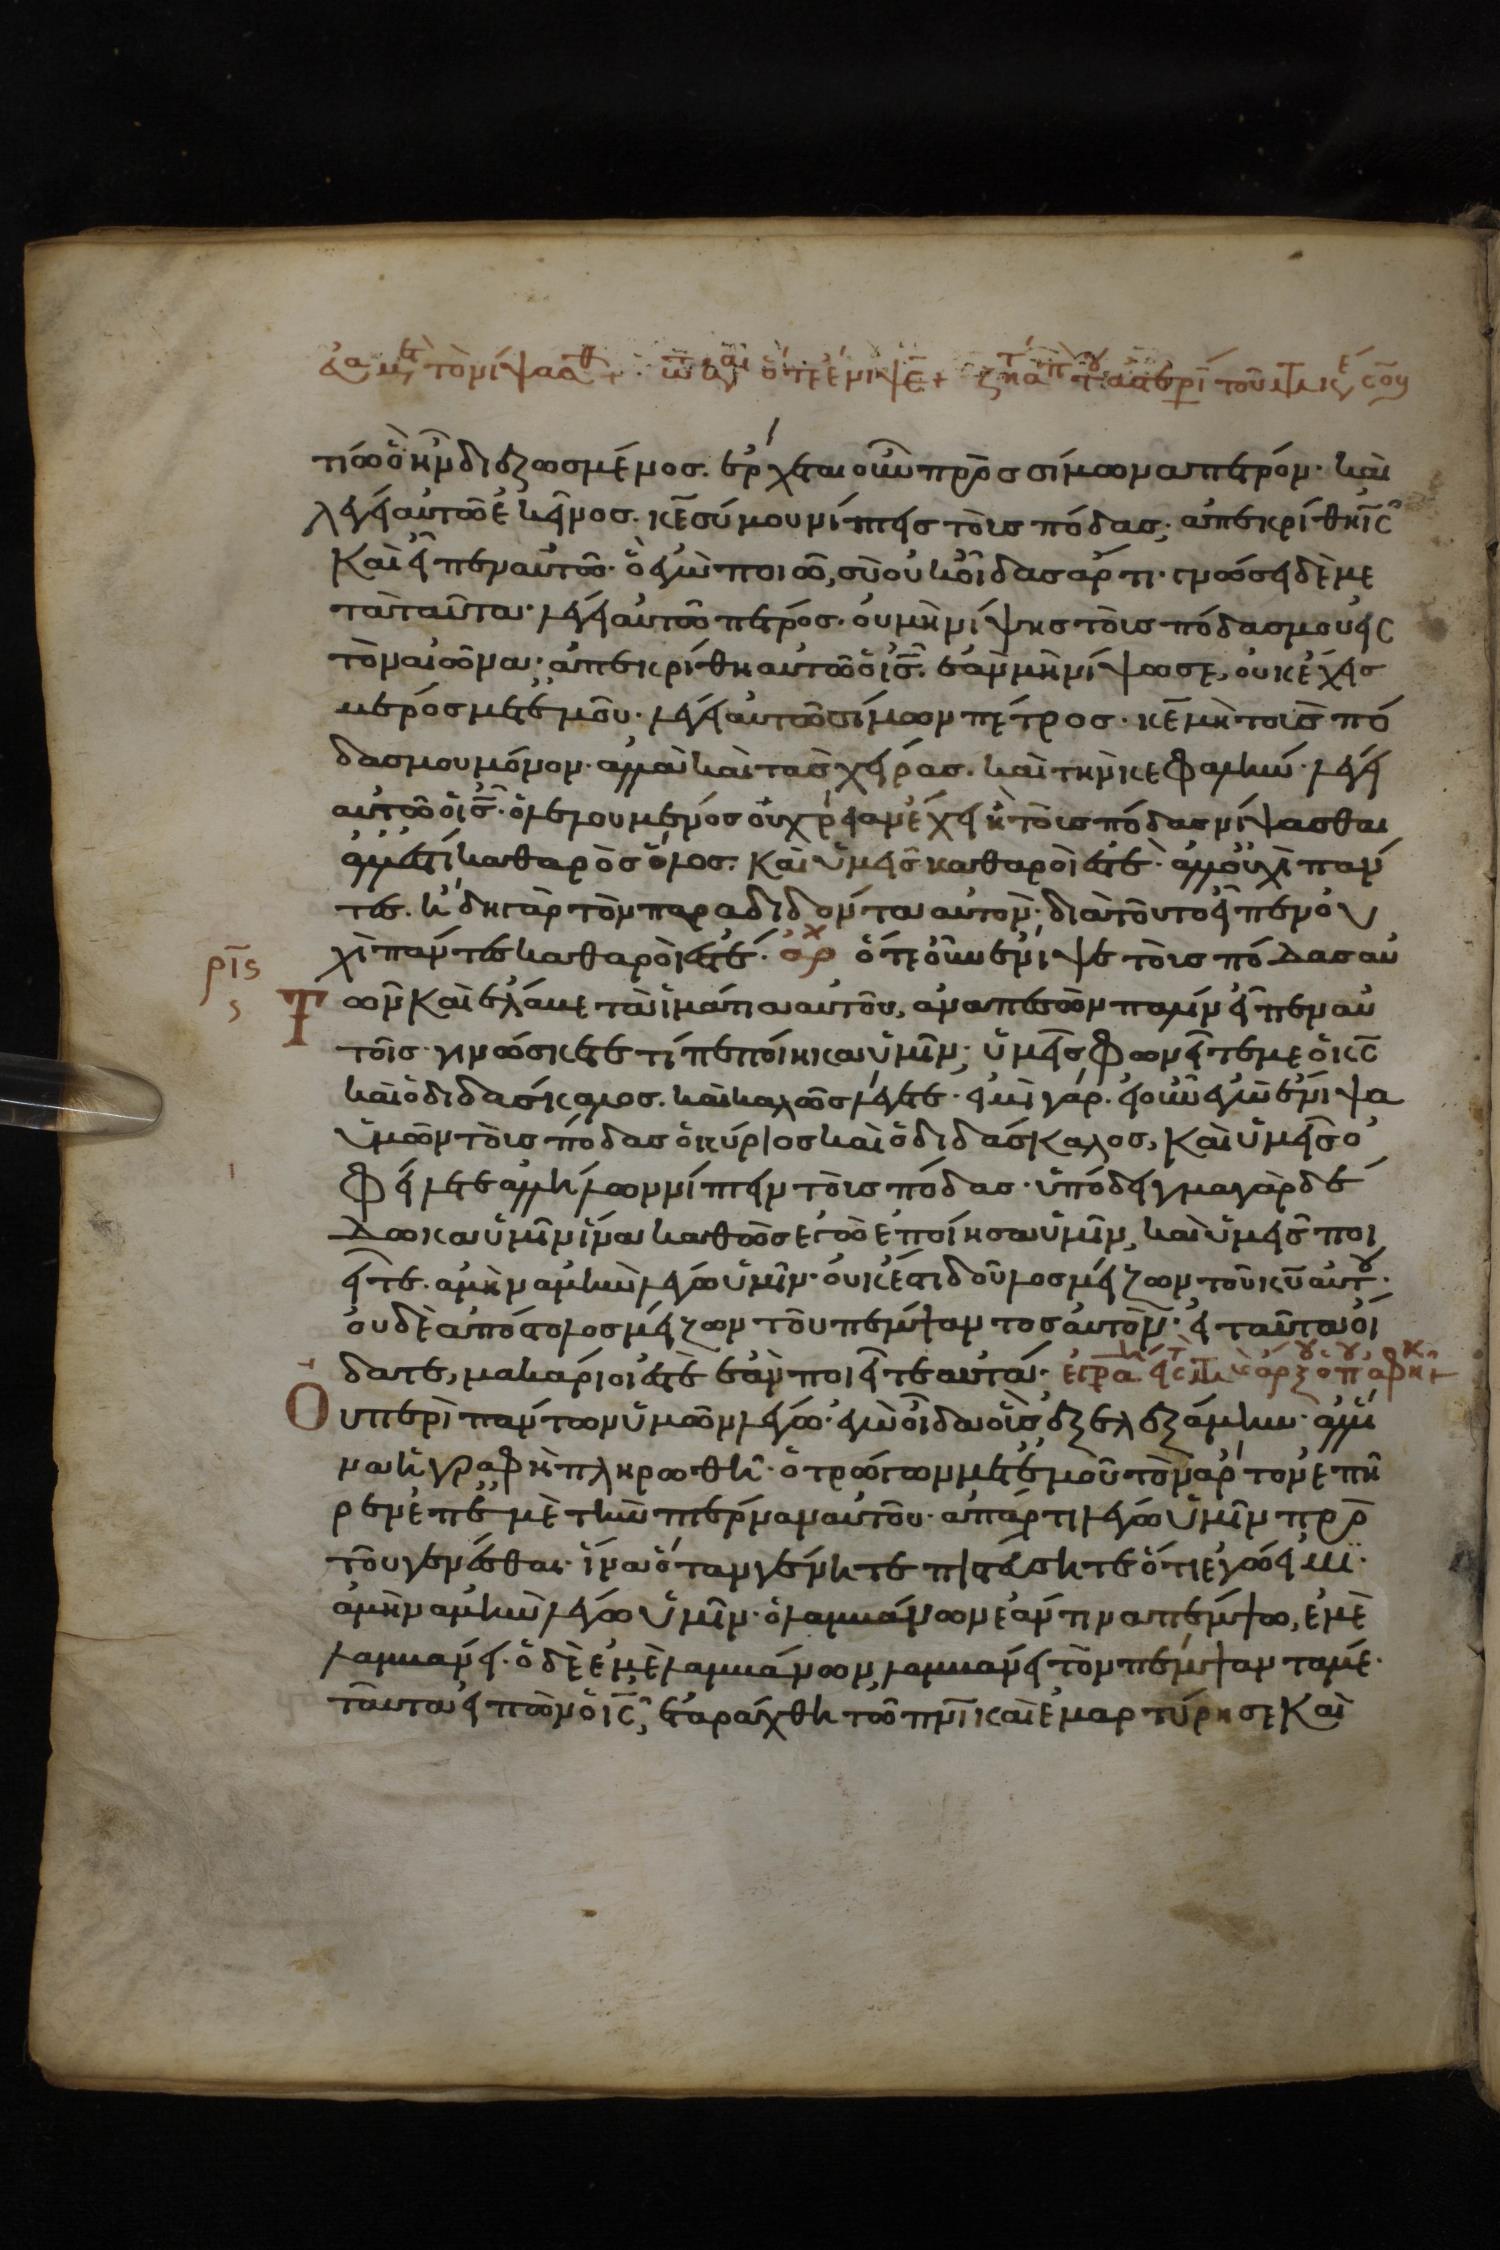 τίω ὃ ἦν διεζωσμένος. ἔρχεται οὖν πρὸς σίμωνα πέτρον· καὶ
λέγει αὐτῶ ἐκεῖνος. κε̅ σύ μου νίπτεις τοὺς πόδας; ἀπεκρίθη ις̅
καὶ εἶπεν αὐτῶ· ὃ ἐγὼ ποιῶ, σὺ οὐκ οἶδας ἄρτι· γνώσει δὲ με
τὰ ταῦτα· λέγει αὐτῶ πέτρος· οὐ μὴ νίψης τοὺς πόδας μου εἰς
τὸν αἰῶνα· ἀπεκρίθη αὐτῶ ὁ ις̅. ἐὰν μὴ νίψω σε, οὐκ ἔχεις
μέρος μετ' ἐμοῦ· λέγει αὐτῶ σίμων πέτρος· κε̅ μὴ τοὺς πό
δας μου μόνον· ἀλλὰ καὶ τὰς χεῖρας. καὶ τὴν κεφαλήν· λέγει
αὐτῶ ὁ ις̅· ὁ λελουμένος οὐ χρείαν ἔχει ἢ τοὺς πόδας νίψασθαι
ἀλλ' ἔστι καθαρὸς ὅλος. καὶ ὑμεῖς καθαροί ἐστέ· ἀλλ' οὐχὶ πάν
τες. ἤδει γὰρ τὸν παραδιδόντα αὐτόν· διὰ τοῦτο εἶπεν οὐ
χὶ πάντες καθαροί ἐστέ· αρχ ὅτε οὖν ἔνιψε τοὺς πόδας αὐ
ρις̅
τῶν καὶ ἔλαβε τὰ ἱμάτια αὐτοῦ, ἀναπεσὼν πάλιν εἶπεν αὐ
τοῖς· γινώσκετε τί πεποίηκα ὑμῖν; ὑμεῖς φωνεῖτέ με ὁ κς̅
καὶ ὁ διδάσκαλος. καὶ καλῶς λέγετε· εἰμὶ γάρ. εἰ οὖν ἐγὼ ἔνιψα
ὑμῶν τοὺς πόδας ὁ κύριος καὶ ὁ διδάσκαλος, καὶ ὑμεῖς ὀ
φείλετε ἀλλήλων νίπτειν τοὺς πόδας· ὑπόδειγμα γὰρ δέ
δωκα ὑμῖν ἵνα καθὼς ἐγὼ ἐποίησα ὑμῖν, καὶ ὑμεῖς ποι
εῖτε. ἀμὴν ἀμὴν λέγω ὑμῖν· οὐκ ἔστι δοῦλος μείζων τοῦ κυ̅ αὐτοῦ·
οὐδὲ ἀπόστολος μείζων τοῦ πέμψαντος αὐτόν· εἰ ταῦτα οἴ
δατε, μακάριοί ἐστε ἐὰν ποιεῖτε αὐτά·
Οὐ περὶ πάντων ὑμῶν λέγω· ἐγὼ οἶδα οὓς ἐξελεξάμην· ἀλλ' ἵ
να ἡ γραφὴ πληρωθῆ· ὁ τρώγων μετ' ἐμοῦ τὸν ἄρτον ἐπῆ
ρεν ἐπ' ἐμὲ τὴν πτέρναν αὐτοῦ· ἀπάρτι λέγω ὑμῖν πρὸ
τοῦ γενέσθαι· ἵνα ὅταν γένηται πιστεύσητε ὅτι ἐγώ εἰμι·
ἀμὴν ἀμὴν λέγω ὑμῖν· ὁ λαμβάνων ἐάν τινα πέμψω, ἐμὲ
λαμβάνει· ὁ δὲ ἐμὲ λαμβάνων, λαμβάνει τὸν πέμψαντά με·
ταῦτα εἰπὼν ὁ ις̅, ἐταράχθη τῶ πνι̅ καὶ ἐμαρτύρησε καὶ